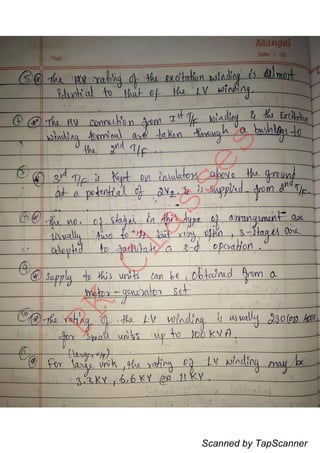 Mangal
Page
Date
⑤ The rating of the excitation winding is almost
identical to that of the LV winding.
The HV connection from Ist T/F winding & the Excitation
winding terminal are taken through a bushings to
the 2nd T/F.
3rd T/F is kept on insulators above the ground
at a potential of 2V2. it is supplied from 2nd T/F.
The no. of stages in this type of arrangement are
usually two to but very often, 3-stages are
adopted to facilitate a 3-ϕ operation.
Supply to this units can be, obtained from a
motor-generator set
The rating of the LV winding is usually 230 (or) 400
for small units up to 100 KVA.
(larger o/p)
For large unit, the rating of LV winding may be
3.3KV, 6.6 KV or 11 KV.
Classes
Scanned by TapScanner